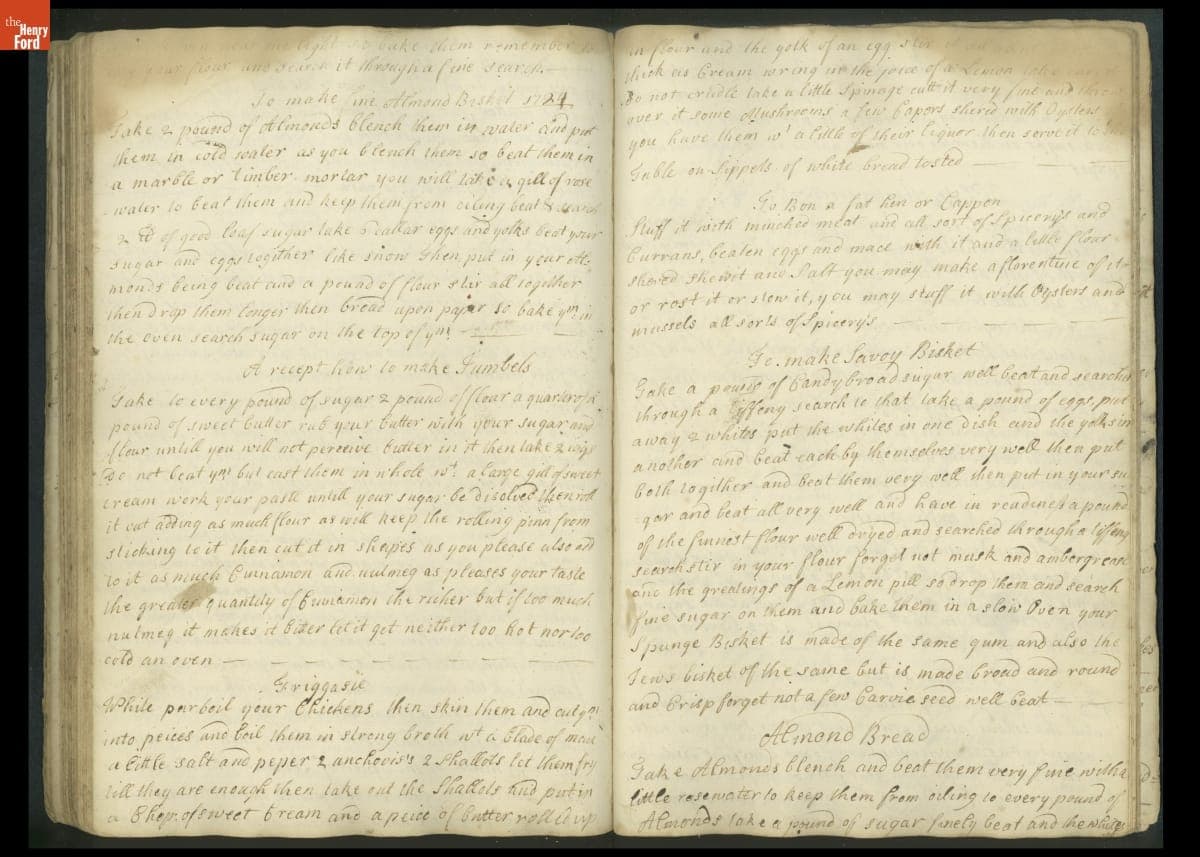 the Henry Ford
them remember to
your flour and search it through a fine search.
To make fine Almond Bisket 1724
Take 2 pound of Almonds blench them in water and put
them in cold water as you blench them so beat them in
a marble or timber mortar you will take a gill of rose
water to beat them and keep them from oiling beat & search
2 lb of good loaf sugar take eggs and yolks beat your
sugar and eggs togither like snow then put in your Al-
monds being beat and a pound of flour stir all together
then drap them longer then bread upon paper so bake ym in
the oven search sugar on the top of ym
A recept how to make Jumbels
Take to every pound of sugar 2 pound of flour a quarter of a
pound of sweet butter rub your butter with your sugar and
flour untill you will not perceive butter in it then take 2 eggs
Do not beat ym but cast them in whole wt a large gill of sweet
cream work your paste untill your sugar be disolved then roll
it out adding as much flour as will keep the rolling pinn from
sticking to it then cut it in shapes as you please also add
to it as much Cinnamon and nutmeg as pleases your taste
the greater quantity of Cinnamon the richer but if too much
nutmeg it makes it bitter let it get neither too hot nor too
cold an oven
Friggasie
While parboil your Chickens then skin them and cut ym
into peices and boil them in strong broth wt a blade of mace
a little salt and peper 2 anchovis's 2 shallots let them fry
till they are enough then take out the shallots and put in
a Chop. of sweet Cream and a peice of butter rolled up
in flour and the yolk of an egg stir it
thick as Cream wring in the joice of a Lemon take care
do not crudle take a little Spinage cutt it very fine and
over it some Mushrooms a few Capors shered with Oysters
you have them wt a little of their liquor then serve it to the
Table on Sippets of white bread tosted
To Bon a fat hen or Cappon
Stuff it with minched meat and all sort of Spicerys and
Currans, beaten eggs and mace with it and a little flour
shered shewit and Salt you may make a florentine of it
or rost it or stew it, you may stuff it with Oysters and
mussels all sorts of Spicerys
To make Savoy Bisket
Take a pound of Candybroad sugar well beat and searched
through a tiffeny search to that take a pound of eggs, put
away 2 whits put the whites in one dish and the yolks in
another and beat each by themselves very well then put
both togither and beat them very well then put in your su
gar and beat all very well and have in readiness a pound
of the finnest flour well dryed and searched through a tiffeny
search stir in your flour forget not musk and ambergrease
and the greatings of a Lemon pill so drop them and search
fine sugar on them and bake them in a slow Oven your
Spunge Bisket is made of the same gum and also the
Jews bisket of the same but is made broad and round
and Crisp forget not a few Carvie seed well beat
Almond Bread
Take Almonds blench and beat them very fine with a
little rosewater to keep them from oiling to every pound of
Almonds take a pound of sugar finely beat and the whites